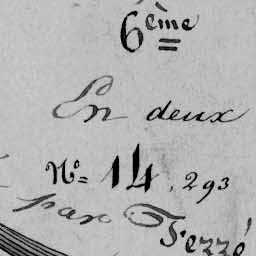 6ème
En deux
No= 14.293
par Fezzé